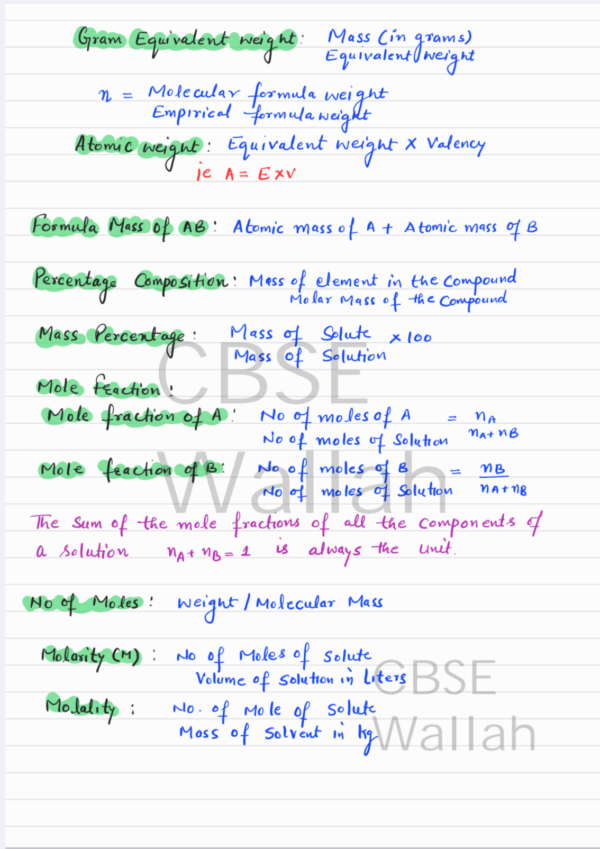 Gram Equivalent weight: Mass (in grams)
Equivalent weight
n = Molecular formula weight
Empirical formula weight
Atomic weight: Equivalent weight x Valency
ie A = E x v
Formula Mass of AB: Atomic mass of A + Atomic mass of B
Percentage Composition: Mass of element in the Compound
Molar Mass of the Compound
Mass Percentage: Mass of Solute x 100
Mass of Solution
CBSE
Mole fraction:
Mole fraction of A: No of moles of A = nA
No of moles of Solution nA+nB
Mole fraction of B: No of moles of B = nB
No of moles of Solution nA+nB
Wallah
The sum of the mole fractions of all the components of
a solution nA + nB = 1 is always the unit.
No of Moles: Weight / Molecular Mass
Molarity (M): No of Moles of Solute
Volume of Solution in Liters
CBSE
Molality: No. of Mole of Solute
Mass of Solvent in kg
Wallah